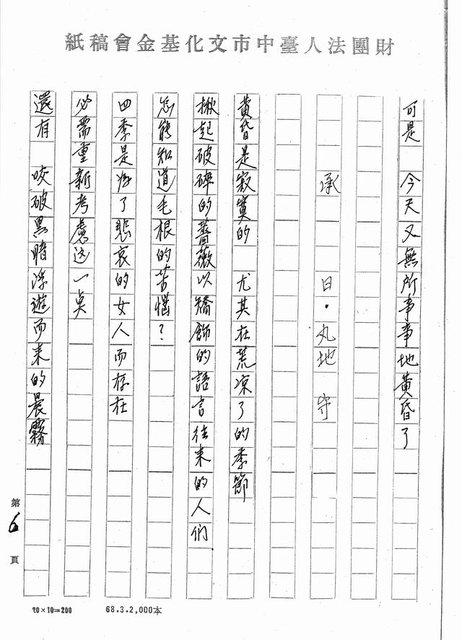 財團法人臺中市文化基金會稿紙
可是　今天又無所事事地黃昏了
承
日・丸地　守
黃昏是寂寞的　尤其在荒凉了的季節
掀起破碑的薔薇以矯飾的語言往来的人们
怎能知道毛根的苦惱？
四季是為了悲哀的女人而存在
必需重新考慮这一桌
還有　咬破黑暗浮遊而来的晨霧
第6頁
20×10=200
68.3.2,000本